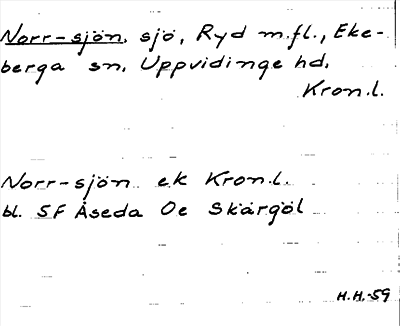 Norr-sjön, sjö, Ryd m.fl., Eke-
berga sn. Uppvidinge hd.
Kron.l.
Norr-sjön ek Kron.l.
bl. 5F Åseda Oe Skärgöl
H.H.-59